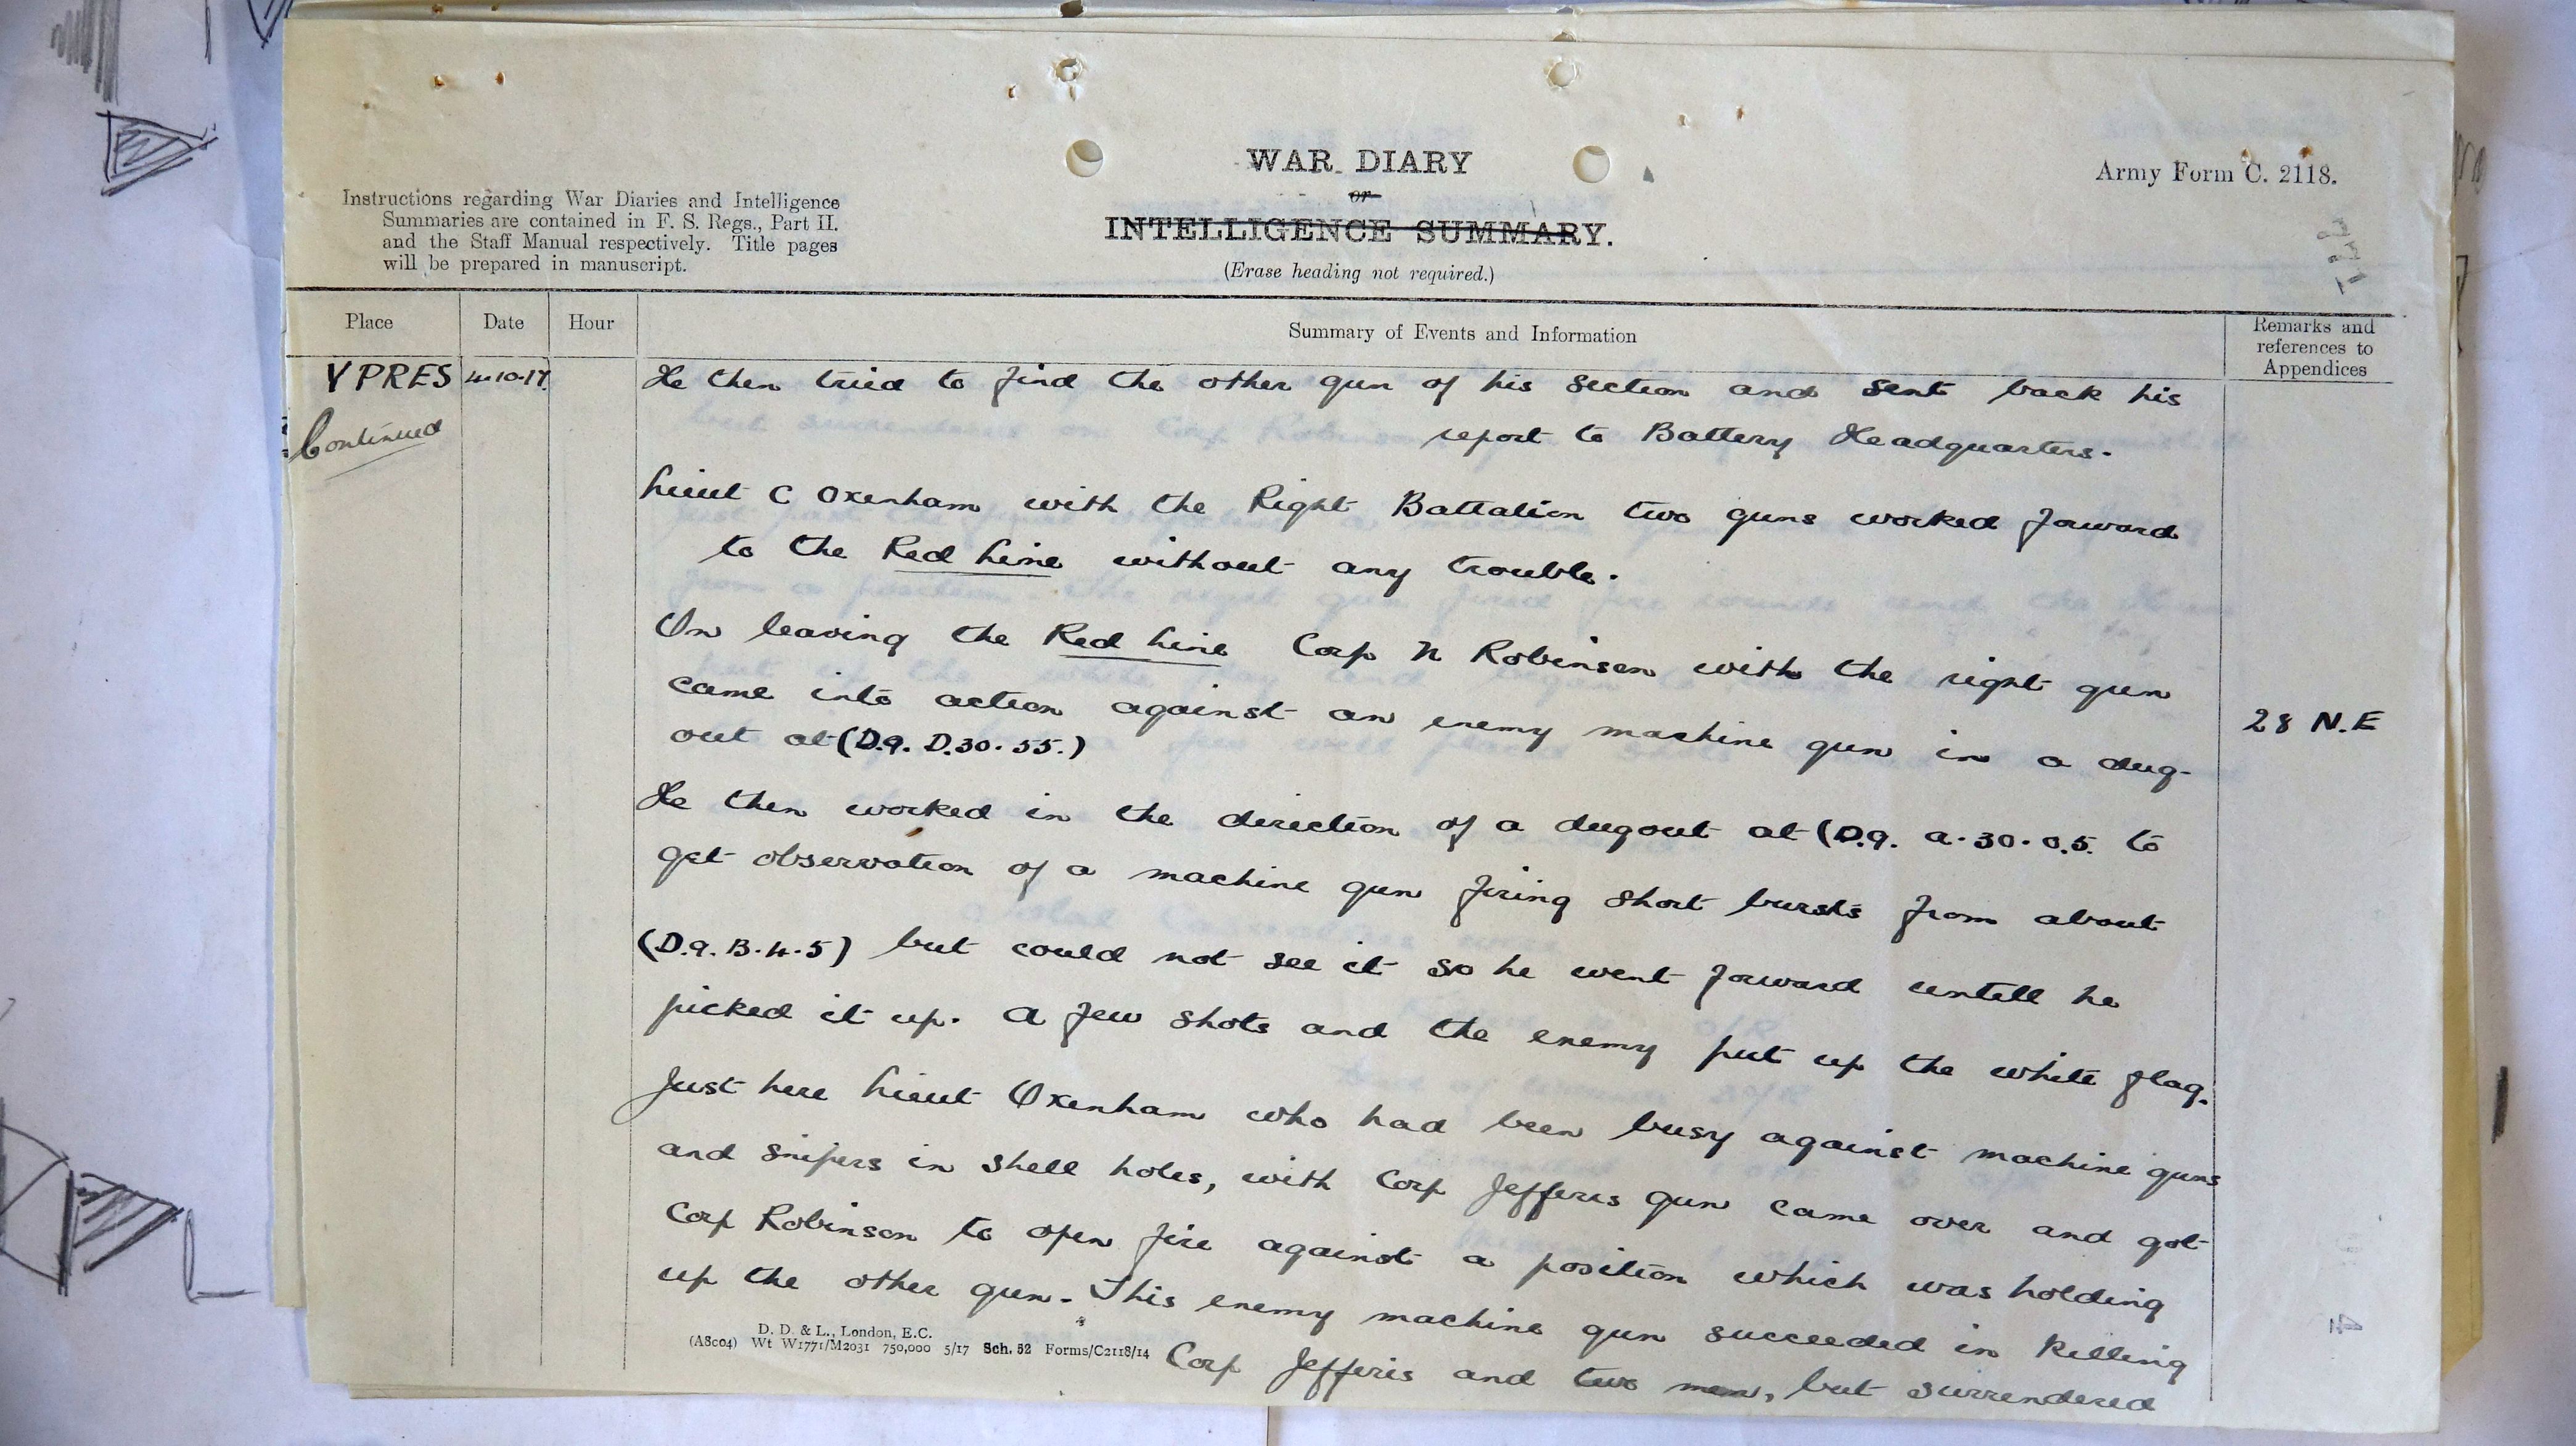 WAR DIARY
or
INTELLIGENCE SUMMARY.
(Erase heading not required.)
Army Form C. 2118.
Instructions regarding War Diaries and Intelligence
Summaries are contained in F. S. Regs., Part II.
and the Staff Manual respectively. Title pages
will be prepared in manuscript.
Place Date Hour Summary of Events and Information Remarks and references to Appendices
YPRES 4.10.17 He then tried to find the other gun of his section and sent back his
Continued report to Battery Headquarters.
Lieut C Oxenham with the Right Battalion two guns worked forward
to the Red Line without any trouble.
On leaving the Red Line Corp N Robinson with the right gun
came into action against an enemy machine gun in a dug-
28 N.E
out at (D.9. D.30.55.)
He then worked in the direction of a dugout at (D.9. a.30.0.5. to
get observation of a machine gun firing short bursts from about
(D.9.B.4.5) but could not see it so he went forward untill he
picked it up. A few shots and the enemy put up the white flag.
Just here Lieut Oxenham who had been busy against machine guns
and snipers in shell holes, with Corp Jefferis gun came over and got
Corp Robinson to open fire against a position which was holding
up the other gun. This enemy machine gun succeeded in killing
Corp Jefferis and two men, but surrendered
D. D. & L., London, E.C.
(A8c04) Wt W1771/M2031 750,000 5/17 Sch. 52 Forms/C2118/14